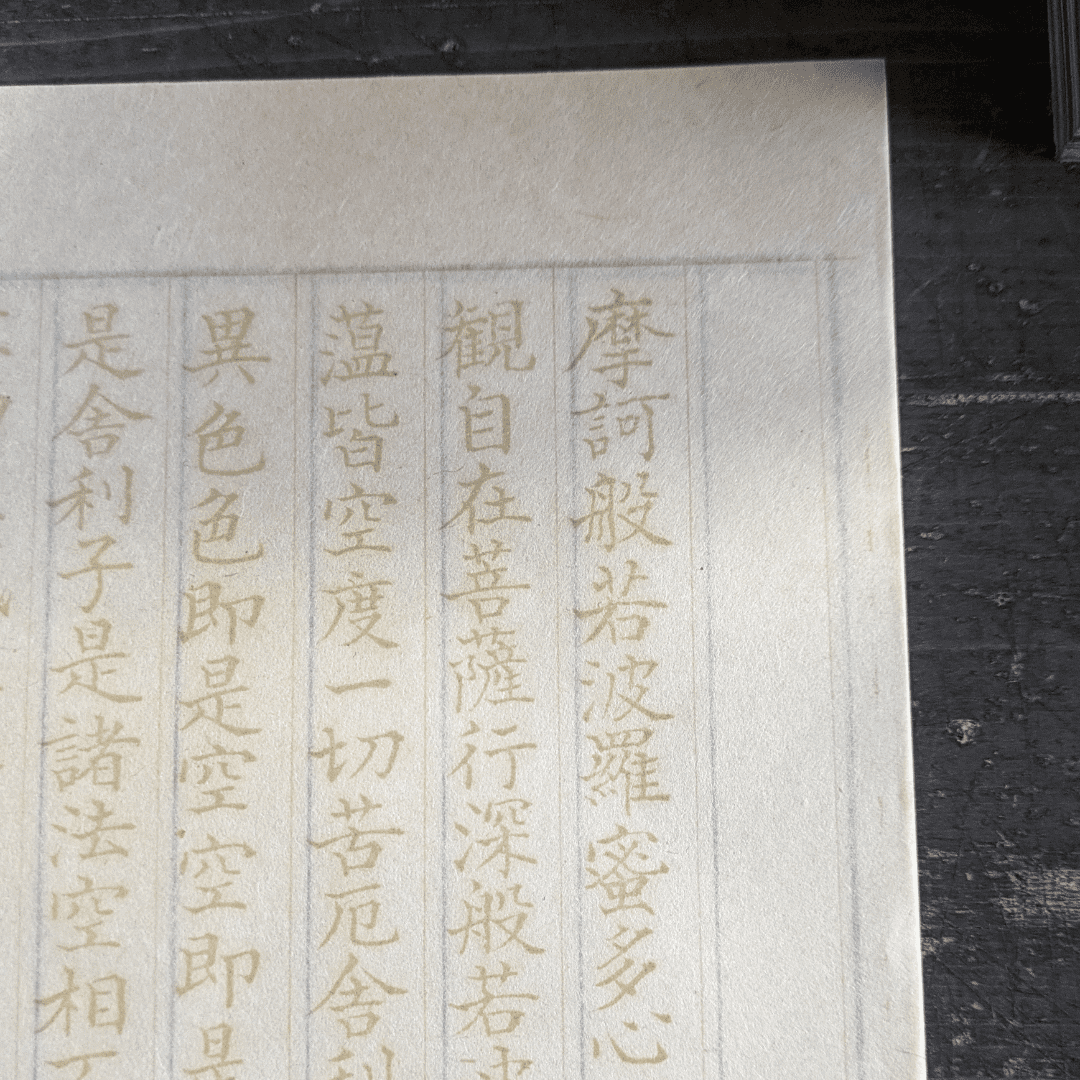 摩訶般若波羅蜜多心
観自在菩薩行深般若波
薀皆空度一切苦厄舎利
異色色即是空空即是
是舎利子是諸法空相不